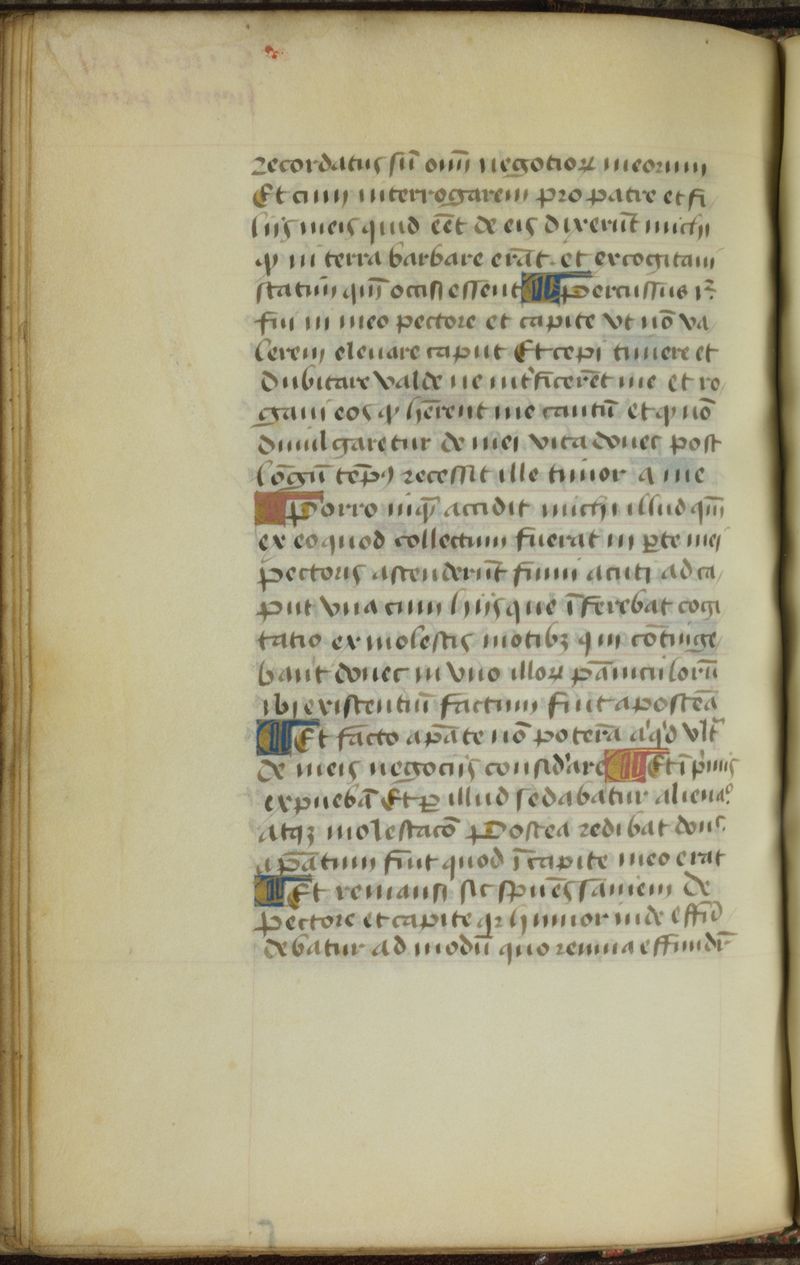 recordatus sū omī negotioꝝ meorum
Et cum interrogarem pro patre et fi
liis meis quid eēt de eis dixerūt michi
ꝙ in terra barbare erāt. et excogitaui
statim qm̄ occisi essent percussus
fui in meo pectore et capite vt nō va
lerem eleuare caput Et cepi timere et
dubitare valde ne int̄ficerēt me et ro
gaui eos ꝙ hērent me cautū et ꝙ nō
diuulgaretur de mei vita donec post
lōgū tēpꝰ recessit ille timor a me
Porro accidit michi illud qm̄
ex eo quod collectum fuerat in ꝑte mei
pectoris ascenderūt fumi acuti ad ca
put vna cum hiis que īferebat cogi
tatio ex molestis motibꝫ q in cōtinge
bant donec in vno illoꝝ pāniculorū
ibi existentiū factum fuit apostēa
Et facto apāte nō poterā vlt̄
de meis negociis consid'are Et ī p'mis
expuebā Et ꝑ illud sedabatur
atqꝫ molestacō Postea redibat donc
apātum fuit quod ī capite meo erat
Et remansi sic spuēs saniem de
pectore et capite humor inde effūd
debatur ad modū quo reuma effundit̄